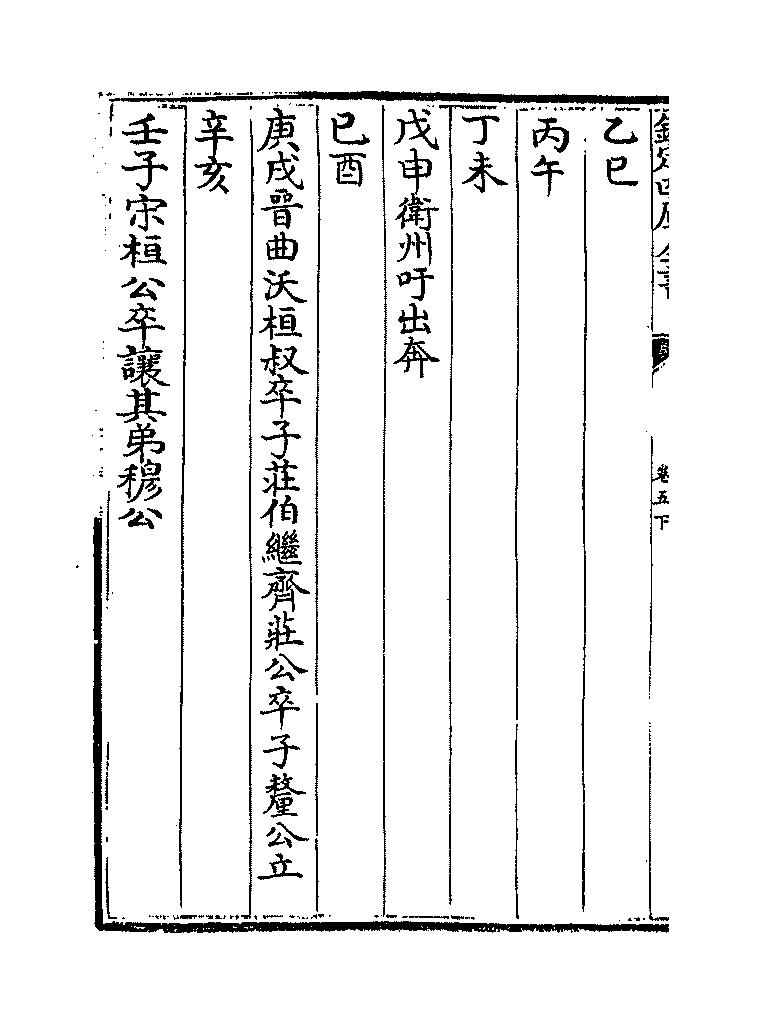 欽定四庫全書
卷五下
乙巳
丙午
丁未
戊申衛州吁出奔
己酉
庚戌晉曲沃桓叔卒子莊伯繼齊莊公卒子釐公立
辛亥
壬子宋桓公卒讓其弟穆公